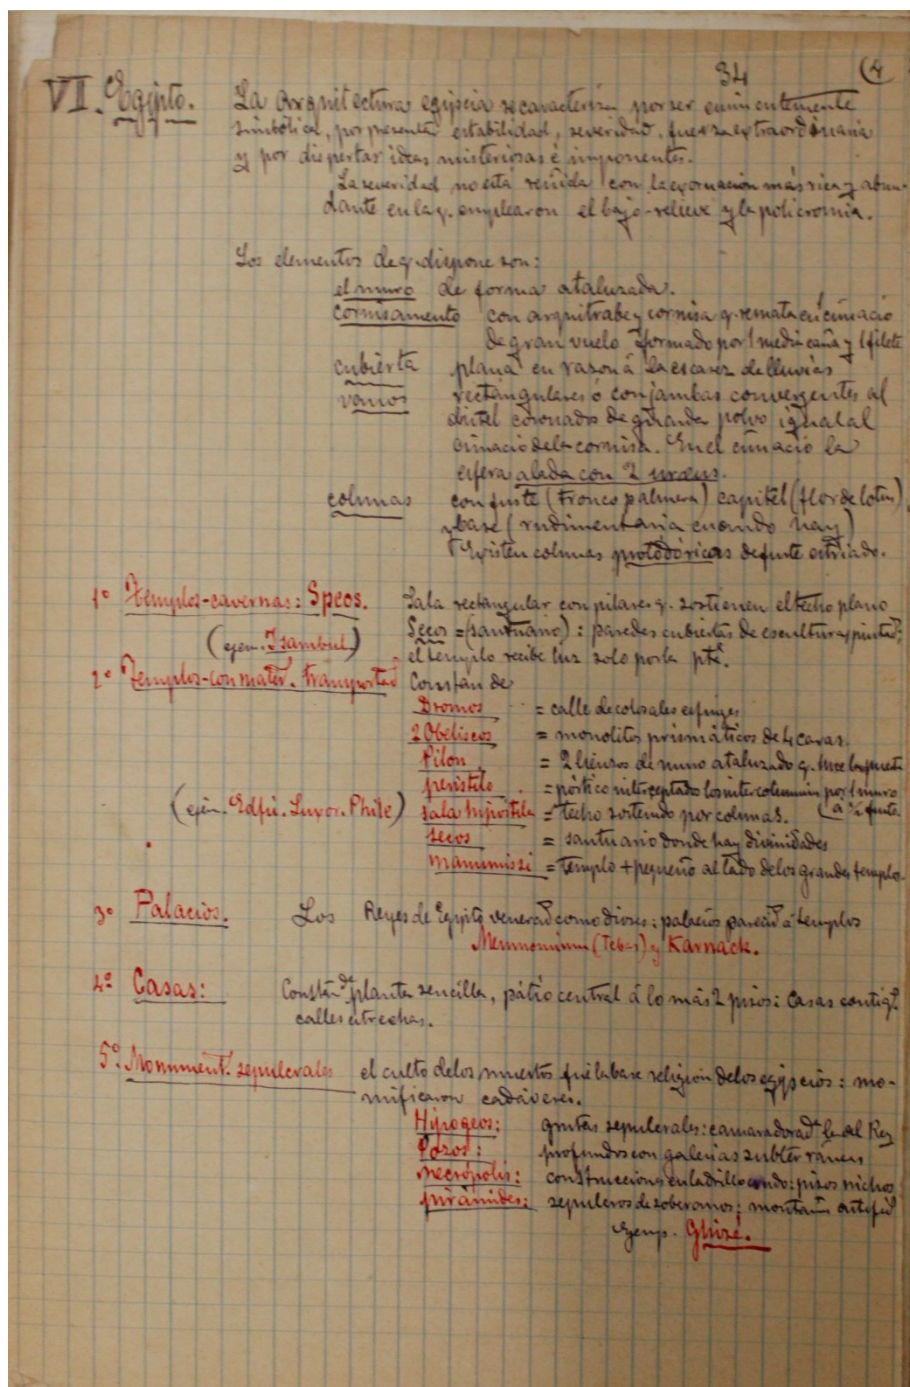 34 (4
VI. Egipto. La Arquitectura egipcia se caracteriza por ser eminentemente
simbólica, por presentar estabilidad, severidad, fuerza extraordinaria
y por dispertar ideas misteriosas é imponentes.
La severidad no está reñida con la exornación más rica y abun-
dante en la q. emplearon el bajo-relieve y la policromia.
Los elementos de q. dispone son:
el muro de forma ataluzada.
cornisamento con arquitrabe y cornisa q. remata en cimacio
de gran vuelo formado por 1 media caña y 1 filete
cubierta plana en razon á la escasez de lluvias
vanos rectangulares ó con jambas convergentes al
dintel coronados de igual al
cimacio de la cornisa. En el cimacio la
esfera alada con 2 uraeus.
colunas con fuste (Tronco palmera) capitel (flor de lotus)
y base (rudimentaria cuando hay)
Existen colunas protodóricas de fuste estriado.
1º Templos-cavernas: Speos. Sala rectangular con pilares q. sostienen el techo plano
(ejem. Isambul) Secos = (santuario): paredes cubiertas de escultura y pintada:
el templo recibe luz solo por la pta.
2º Templos-con mater. transportad Constan de
Dromos = calle de colosales esfinges
2 Obeliscos = monolitos prismáticos de 4 caras.
Pilon = 2 lienzos de muro ataluzado q.
peristilo = pórtico interceptado los intercolumnios por 1 muro
a ½ fuste
(ejem. Edfú. Luxor. Philæ) sala hipóstila = techo sostenido por colunas.
secos = santuario donde hay divinidades
mammissi = templo + pequeño al lado de los grandes templos.
3º Palacios. Los Reyes de Egipto venerad como dioses: palacios pareceid á templos
Memnonium (Tebas) y Karnack.
4º Casas: Constan de planta sencilla, pátio central á lo más 2 pisos: Casas contigs
calles estrechas.
5º. Monument. sepulcrales el culto de los muertos fué la base religión de los egipcios: mo-
mificaron cadáveres.
Hipogeos: grutas sepulcrales: del Rey
Pozos: profundos con galerias subterráneas
necrópolis: construcciones en ladrillo crudo: pisos nichos
pirámides: sepulcros de soberanos: montañs artifics
Ejemp. Ghizé.